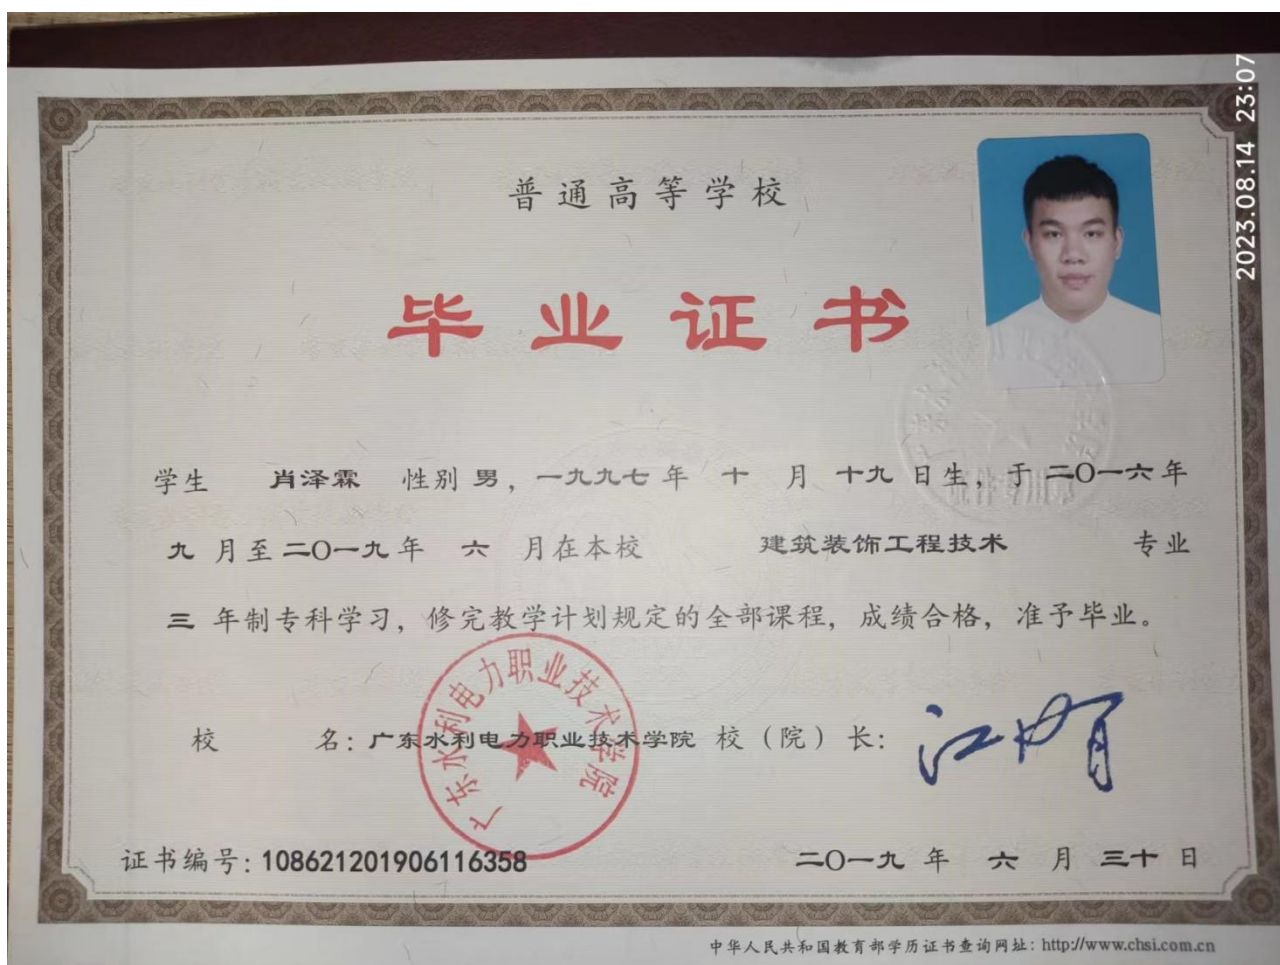 2023.08.14 23:07
普通高等学校
毕业证书
学生 肖泽霖 性别 男, 一九九七年 十 月 十九 日生, 于 二〇一六年
九 月至 二〇一九年 六 月在本校 建筑装饰工程技术 专业
三 年制专科学习, 修完教学计划规定的全部课程, 成绩合格, 准予毕业。
校 名: 广东水利电力职业技术学院 校(院)长:
广东水利电力职业技术学院
证书编号: 108621201906116358 二〇一九 年 六 月 三十 日
中华人民共和国教育部学历证书查询网址: http://www.chsi.com.cn